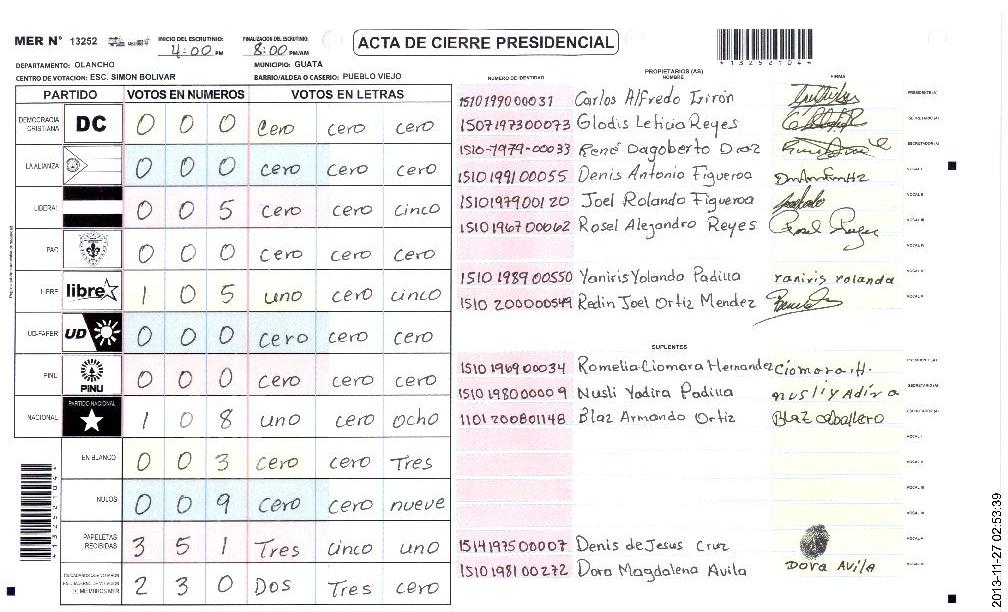 MER N° 13252 INICIO DEL ESCRUTINIO: 4:00 PM FINALIZACION DEL ESCRUTINIO: 8:00 PM/AM ACTA DE CIERRE PRESIDENCIAL
DEPARTAMENTO: OLANCHO MUNICIPIO: GUATA
CENTRO DE VOTACION: ESC. SIMON BOLIVAR BARRIO/ALDEA O CASERIO: PUEBLO VIEJO
4132521044
PARTIDO VOTOS EN NUMEROS VOTOS EN LETRAS
DEMOCRACIA CRISTIANA DC 0 0 0 Cero cero cero
LA ALIANZA 0 0 0 cero cero cero
LIBERAL 0 0 5 cero cero cinco
PAC 0 0 0 cero cero cero
LIBRE libre 1 0 5 uno cero cinco
UD-FAPER UD 0 0 0 cero cero cero
PINU PINU 0 0 0 cero cero cero
NACIONAL PARTIDO NACIONAL 1 0 8 uno cero ocho
EN BLANCO 0 0 3 cero cero Tres
NULOS 0 0 9 cero cero nueve
PAPELETAS RECIBIDAS 3 5 1 Tres cinco uno
CIUDADANOS QUE VOTARON EN CUADERNO DE VOTACION (+) MIEMBROS MER 2 3 0 Dos Tres cero
PROPIETARIOS (AS)
NUMERO DE IDENTIDAD NOMBRE FIRMA
1510199000031 Carlos Alfredo Girón PRESIDENTE (A)
1507197300073 Glodis Leticia Reyes SECRETARIO (A)
1510-7979-00033 René Dagoberto Diaz ESCRUTADOR (A)
1510199100055 Denis Antonio Figueroa VOCAL I
1510197900120 Joel Rolando Figueroa VOCAL II
1510196700062 Rosel Alejandro Reyes VOCAL III
VOCAL IV
1510198900550 Yaniris Yolanda Padilla Yaniris Yolanda
1510200000549 Redin Joel Ortiz Mendez
SUPLENTES
1510196900034 Romelia Ciomara Hernandez Ciomara H. PRESIDENTE (A)
1510198000009 Nusli Yadira Padilla nusli yAdira SECRETARIO (A)
1101200801148 Blaz Armando Ortiz Blaz caballero ESCRUTADOR (A)
VOCAL I
VOCAL II
VOCAL III
1514197500007 Denis de Jesus Cruz
1510198100272 Dora Magdalena Avila Dora Avila
2013-11-27 02:53:39